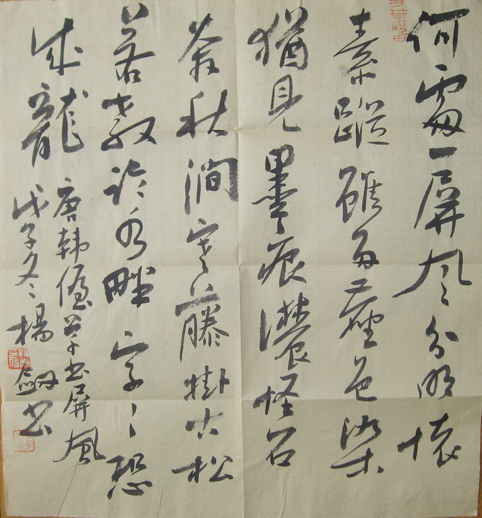 何處一屏风分明懷
素蹤雖多塵色染
猶見墨痕濃怪石
奔秋澗寒藤掛古松
若教臨水畔字々恐
成龍
唐韓偓草書屏風
戊子冬楊劍書